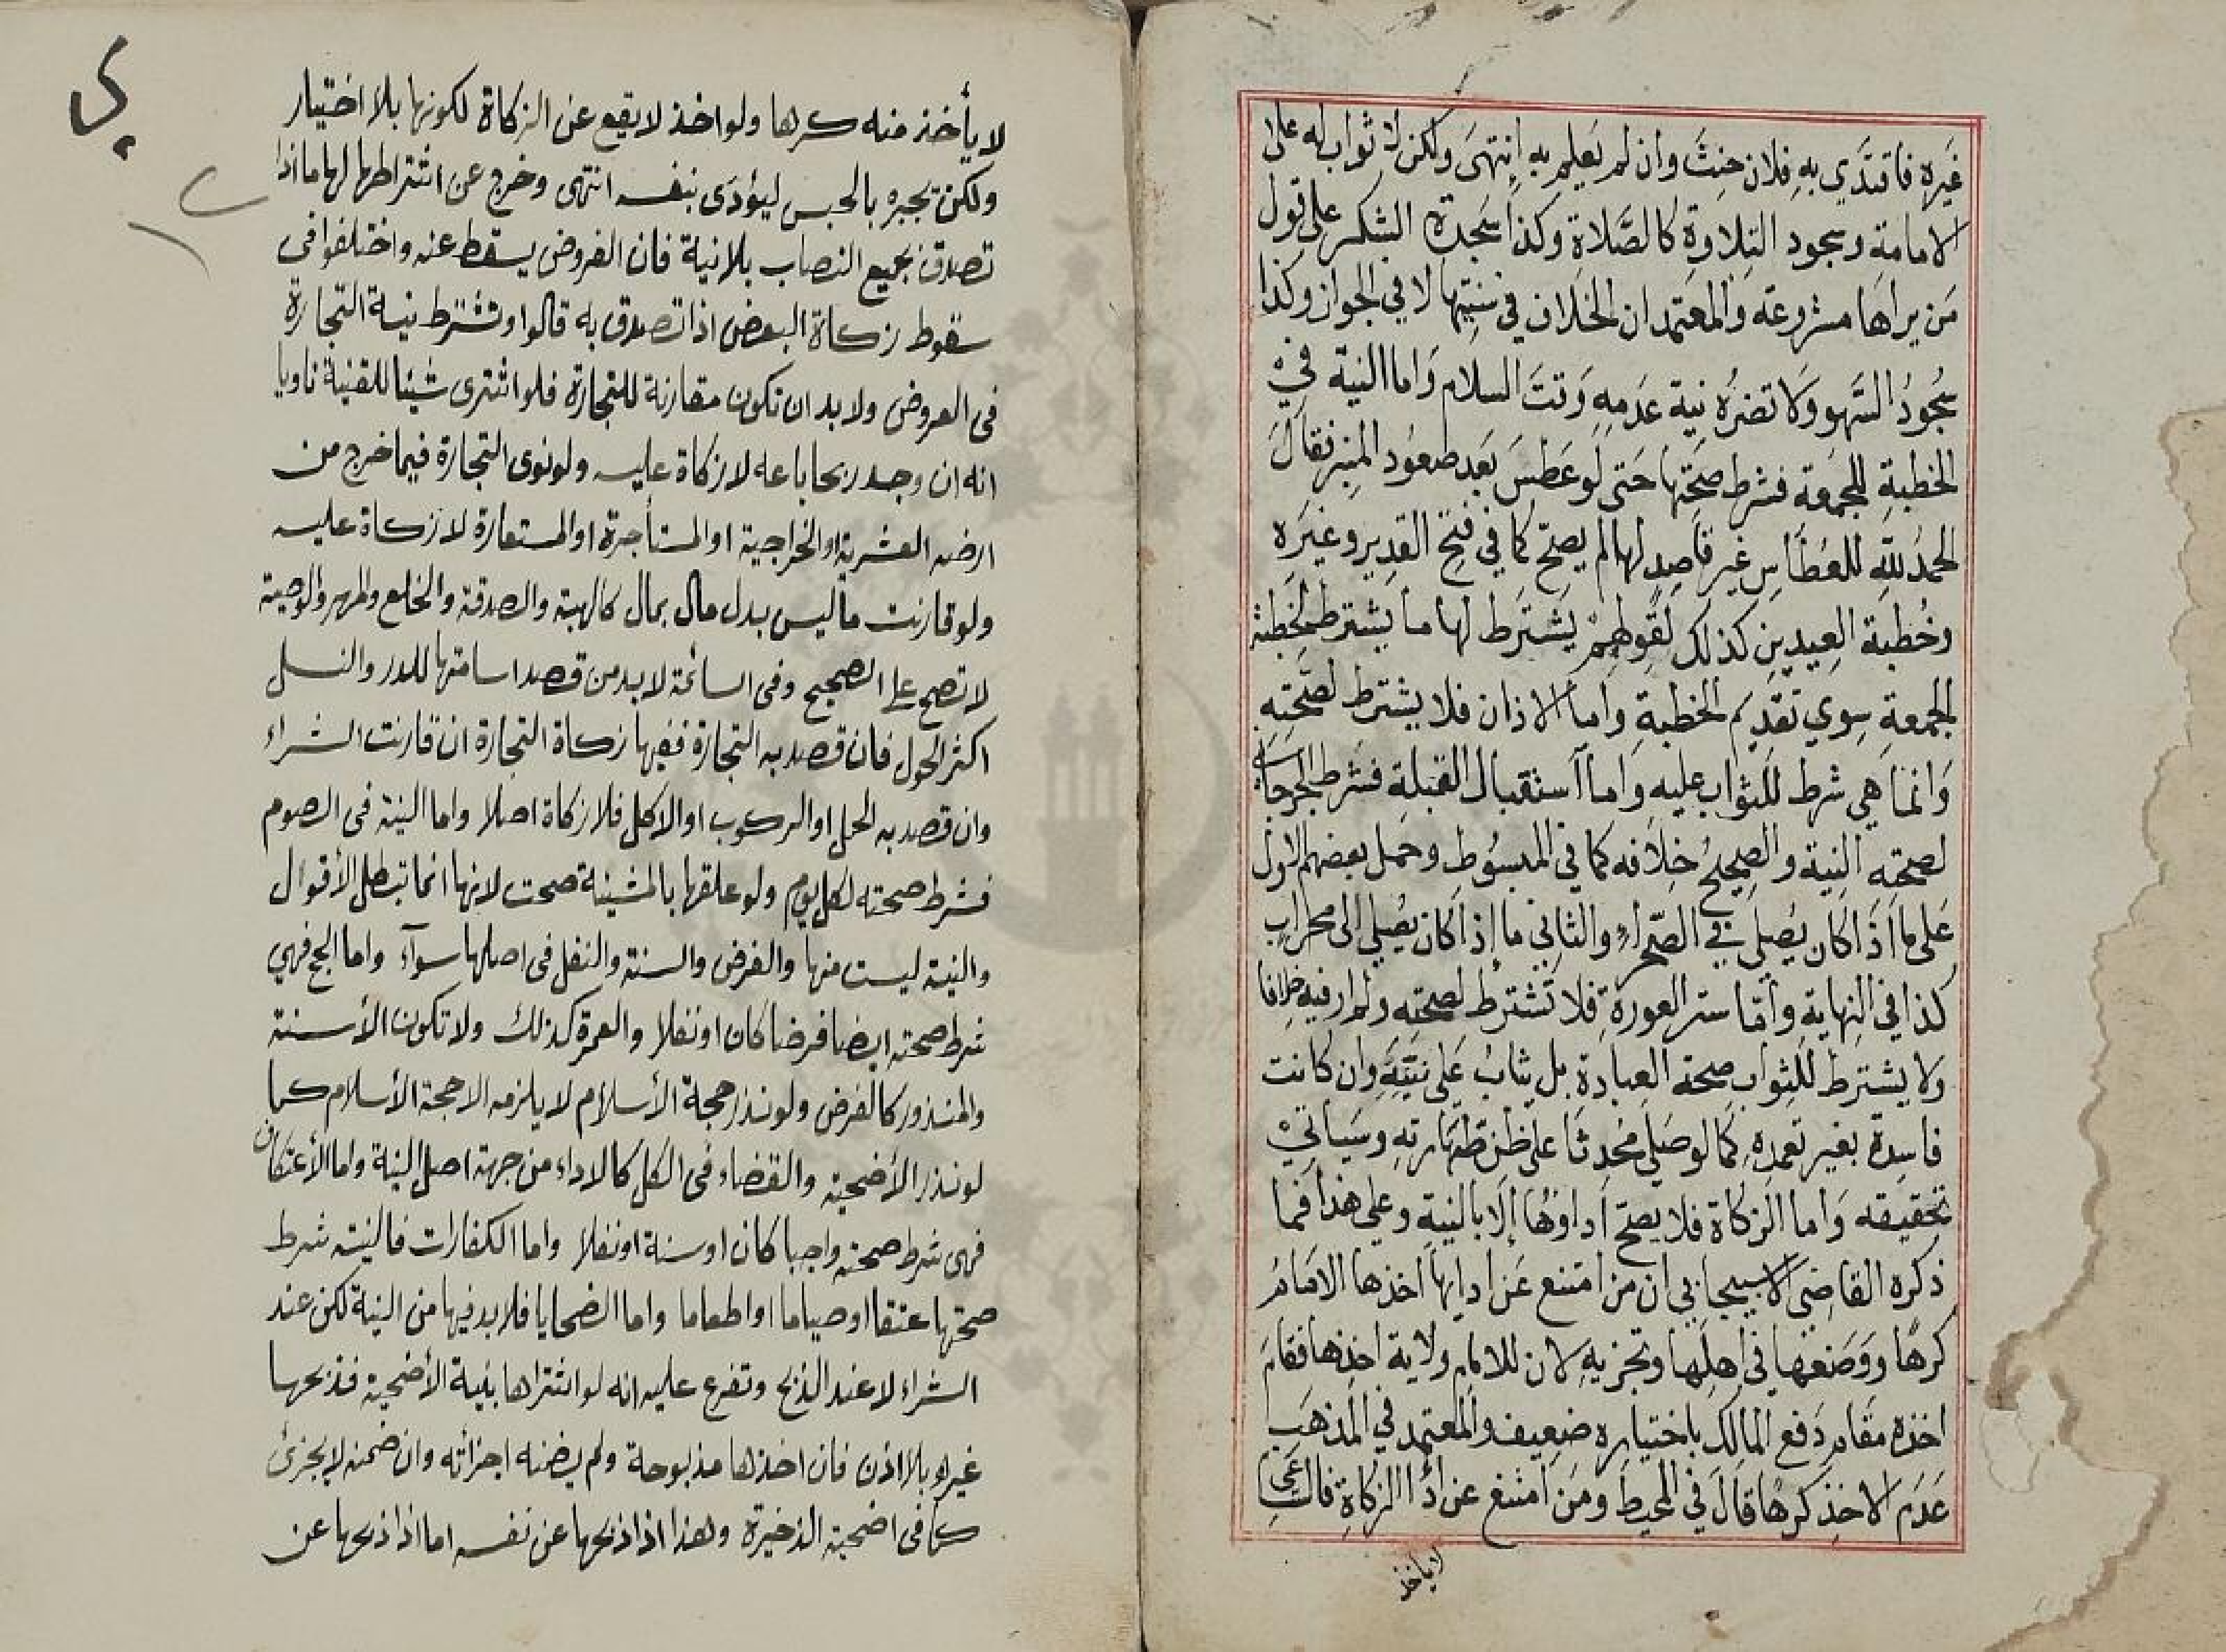 غَيره فاقتدَي بهِ فلان حنِثَ وان لم يَعلم به إنتهَى ولكن لا ثواب له على
الامامة وسجود التلاوة كالصَّلاة وكذا سَجدة الشكر على قول
مَن يراهَا مشروعة وَالمعتمد ان الخلاف في سُنيتها لا في الجواز وكذا
سُجودُ السَّهو وَلا تضرُه نية عَدَمِهِ وَقتَ السلام وَاما النية في
الخطبةِ للجمعة فشرط صحتها حَتى لَو عَطسَ بَعد صعُود المنبر فقالَ
الحمدُ للهِ للعُطاسِ غَير قاصِدٍ لها لم يصحّ كما في فتح القدِير وغيَره
وخُطبة العِيدينِ كذلك لقولهمْ يشترَط لها ما يُشترط لخطبة
الجمعةِ سِوي تقديم الخطبةِ وامَا الاذان فلا يشترط لصَّحتِه
وَانما هي شرط للثواب عليهِ وَامَا استقبال القبلة فشرط الجرجاني
لصحته النية والصحيحُ خِلافه كما في المبسُوطِ وحمل بعضهم الاول
عَلى ما اذَا كان يُصلي في الصّحراءِ والثاني ما إذا كان يُصلي الى محراب
كذا في النهايةِ وأمّا ستر العورةِ فلا تشترط لصحته ولم ار فيه خلافا
ولا يشترط للثواب صحة العِبادة بل يثابُ عَلى نيّتهَ وان كانت
فاسِدة بغير تعمدهِ كما لو صَلى مُحدِثا على ظن طهَارتهِ وسَياتيْ
تحقيقه وَاما الزكاة فلا يصحّ اداؤهُا إلا بالنية وعلي هذا فما
ذكره القاضي الاسبيجابي ان من امتنع عَن ادايها اخذها الامَامُ
كرهًا ووَضعَها في اهلها وتجزيهِ لان للامام ولاية اخذها فقامَ
اخذه مقام دَفع المالِك باختياره ضعِيف والمعتمد في المَذهَبِ
عَدَم الاخذِ كرهًا قالَ في المحيط ومَن امتنع عن أدا الزكاةِ فالساعِي
لا ياخذ
لا يأخذ منه كرها ولو اخذ لا يقع عن الزكاة لكونها بلا اختيار
ولكن تجبره بالحبس ليؤدى بنفسه انتهى وخرج عن اشتراطها لها ما اذا
تصدق بجميع النصاب بلا نية فان الفروض يسقط عنه واختلفوا فى
سقوط زكاة البعض اذا تصدق به قالوا وتشترط نية التجارة
فى العروض ولا بد ان تكون مقارنة للتجارة فلو اشترى شيئا للقنية ناويا
انه ان وجد ربحا باعه لا زكاة عليه ولو نوى التجارة فيما خرج من
ارضه العشرية او الخراجية او المستأجرة او المستعارة لا زكاة عليه
ولو قارنت ما ليس بدل مال بمال كالهبة والصدقة والخلع والمهر والوصية
لا تصح على الصحيح وفى السائمة لا بد من قصد اسامتها للدر والنسل
اكثر الحول فان قصد به التجارة ففيها زكاة التجارة ان قارنت الشراء
وان قصد به الحمل او الركوب او الاكل فلا زكاة اصلا واما النية فى الصوم
فشرط صحته لكل يوم ولو علقها بالمشيئة صحت لانها انما تبطل الأقوال
والنية ليست منها والفرض والسنة والنفل فى اصلها سوآء واما الحج فهي
شرط صحته ايضا فرضا كان او نفلا والعمرة كذلك ولا تكون الأسنة
والمنذور كالفرض ولو نذر حجة الأسلام لا يلزمه الا حجة الأسلام كما
لو نذر الأضحية والقضاء فى الكل كالاداء من جهة اصل النية واما الأعتكاف
فهى شرط صحته واجبا كان او سنة او نفلا واما الكفارات فالنية شرط
صحتها عتقا او صياما او اطعاما واما الضحايا فلا بد فيها من النية لكن عند
الشراء لا عند الذبح وتفرع عليه انه لو اشتراها بنية الأضحية فذبحها
غيره بلا اذن فان اخذها مذبوحة ولم يضمنه اجزأته وان ضمنه لا يجزئ
كما فى اضحية الذخيرة وهذا اذا ذبحها عن نفسه اما اذا ذبحها عن